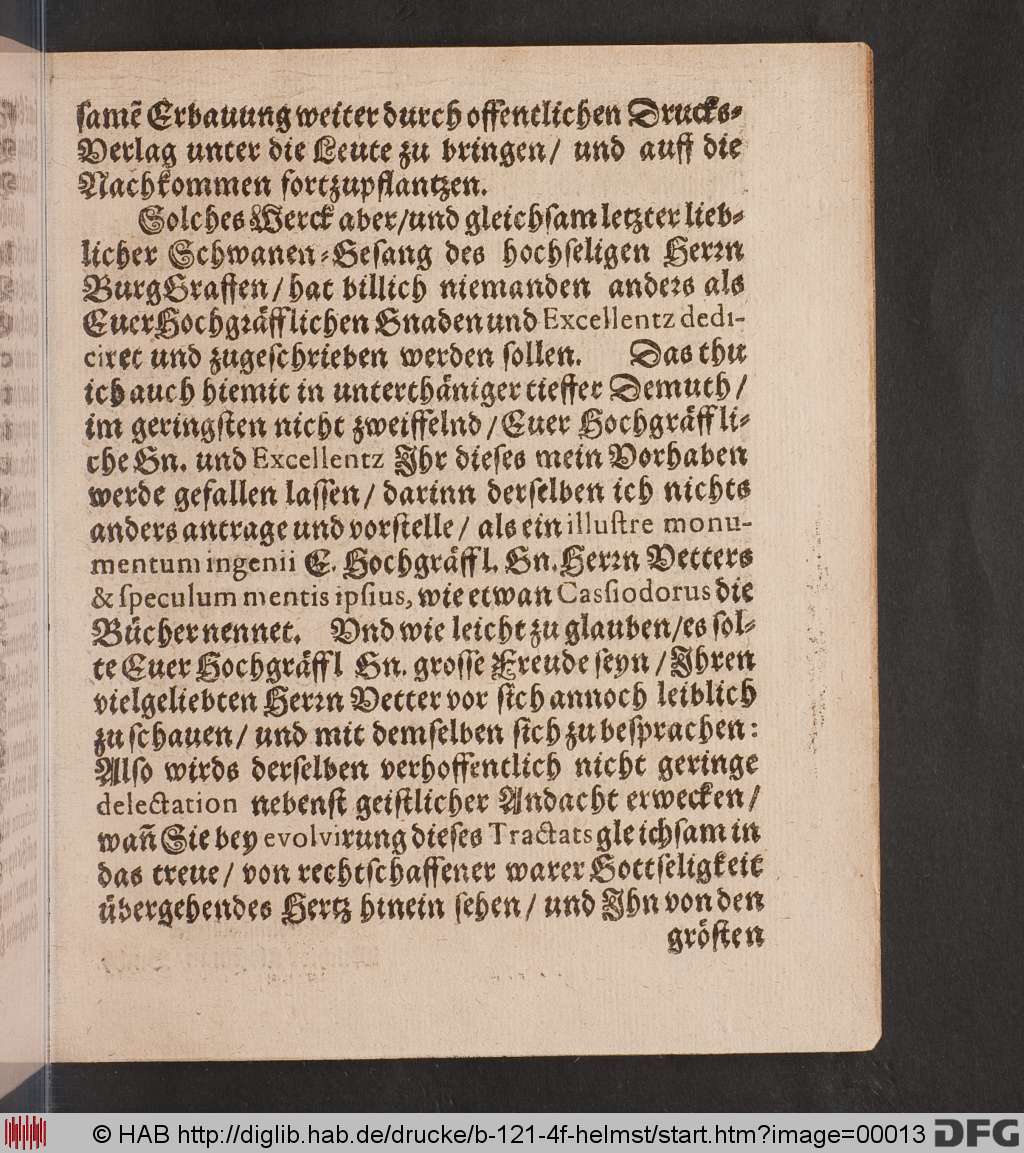 samẽ Erbauung weiter durch offentlichen Drucks-
Verlag unter die Leute zu bringen/ und auff die
Nachkommen fortzupflantzen.
Solches Werck aber/und gleichsam letzter lieb-
licher Schwanen-Gesang des hochseligen Herrn
BurgGraffen/ hat billich niemanden anders als
EuerHochgräfflichen Gnaden und Excellentz dedi-
ciret und zugeschrieben werden sollen. Das thu
ich auch hiemit in unterthäniger tieffer Demuth/
im geringsten nicht zweiffelnd/Euer Hochgräffli-
che Gn. und Excellentz Ihr dieses mein Vorhaben
werde gefallen lassen/ darinn derselben ich nichts
anders antrage und vorstelle/ als ein illustre monu-
mentum ingenii E. Hochgräffl. Gn. Herrn Vetters
& speculum mentis ipsius, wie etwan Cassiodorus die
Bücher nennet. Vnd wie leicht zu glauben/es sol-
te Euer Hochgräffl Gn. grosse Freude seyn/Ihren
vielgeliebten Herrn Vetter vor sich annoch leiblich
zu schauen/ und mit demselben sich zu besprachen:
Also wirds derselben verhoffentlich nicht geringe
delectation nebenst geistlicher Andacht erwecken/
wañ Sie bey evolvirung dieses Tractats gleichsam in
das treue/ von rechtschaffener warer Gottseligkeit
übergehendes Hertz hinein sehen/ und Ihn von den
grösten
© HAB http://diglib.hab.de/drucke/b-121-4f-helmst/start.htm?image=00013 DFG